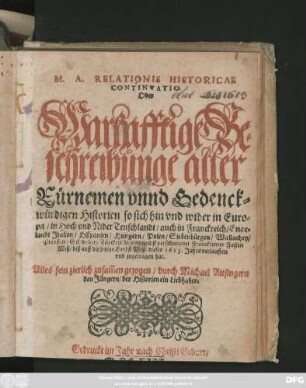 M. A. RELATIONIS HISTORICAE
CONTINVATIO
Oder
Warhafftige Be
schreibunge aller
Fürnemen vnnd Gedenck-
würdigen Historien so sich hin vnd wider in Euro-
pa / in Hoch vnd Nider Teutschlandt / auch in Franckreich / Enge-
landt Italien / Hispanien / Hungern / Polen / Siebenbürgen / Wallachey /
1613. Jahrs verlauffen
vnd zugetragen hat.
Alles fein zierlich zusamen gezogen / durch Michael
den Jüngern / der Historien ein Liebhaber.
Gedruckt im Jahr nach Christi Geburt /